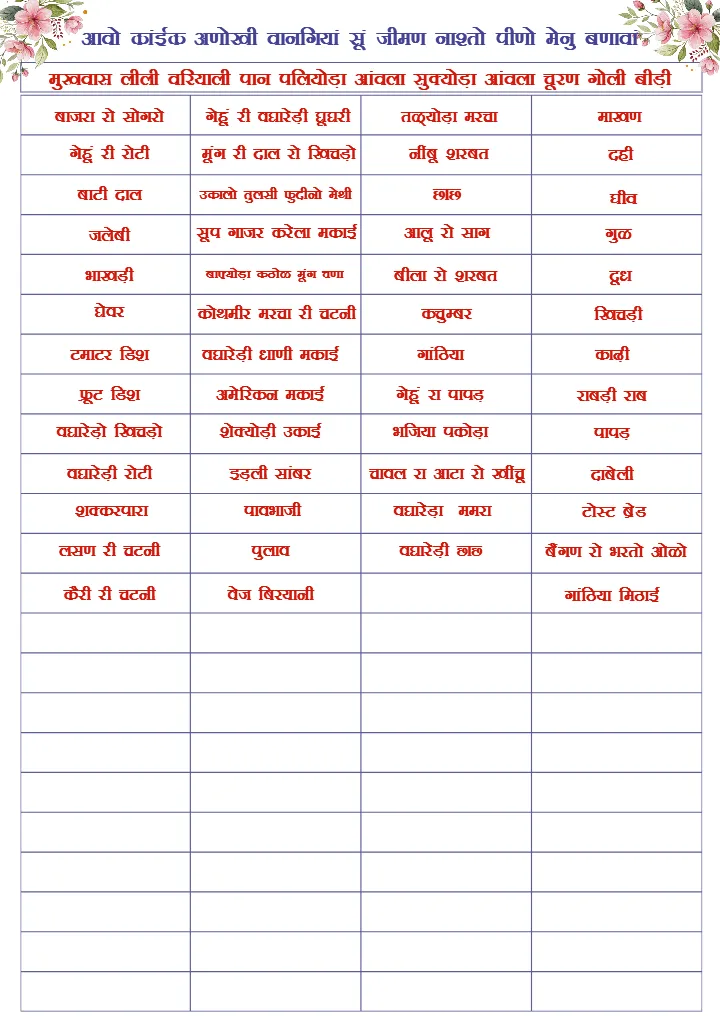 आवो कांईक अणोखी वानगियां सूं जीमण नाश्तो पीणो मेनु बणावां
मुखवास लीली वरियाली पान पलियोड़ा आंवला सुक्योड़ा आंवला चूरण गोली बीड़ी
बाजरा रो सोगरो गेहूं री वघारेड़ी घूघरी तळ्योड़ा मरचा माखण
गेहूं री रोटी मूंग री दाल रो खिचड़ो नींबू शरबत दही
बाटी दाल उकालो तुलसी फुदीनो मेथी छाछ घीव
जलेबी सूप गाजर करेला मकाई आलू रो साग गुळ
भाखड़ी बाफ्योड़ा कठोळ मूंग चणा बीला रो शरबत दूध
घेवर कोथमीर मरचा री चटनी कचुम्बर खिचड़ी
टमाटर डिश वघारेड़ी धाणी मकाई गांठिया काढ़ी
फ्रूट डिश अमेरिकन मकाई गेहूं रा पापड़ राबड़ी राब
वघारेड़ो खिचड़ो शेक्योड़ी उकाई भजिया पकोड़ा पापड़
वघारेड़ी रोटी इड़ली सांबर चावल रा आटा रो खींचू दाबेली
शक्करपारा पावभाजी वघारेड़ा ममरा टोस्ट ब्रेड
लसण री चटनी पुलाव वघारेड़ी छाछ बैंगण रो भरतो ओळो
कैरी री चटनी वेज बिरयानी गांठिया मिठाई